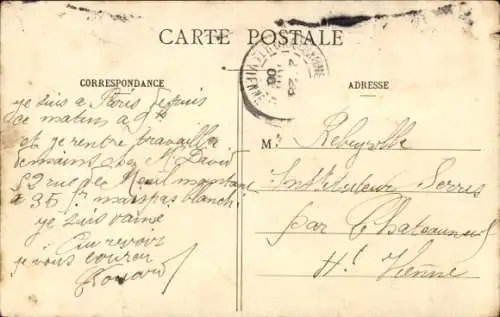 CARTE POSTALE
CORRESPONDANCE
je suis à Paris depuis
ce matin à 9 h
et je rentre travailler
demain chez Mr David
52 rue de Menilmontant
à 35 f. mais pas blanchi
je suis
Au revoir
je vous
ADRESSE
M. Rebeyrolle
Instituteur Serres
par Chateauneuf
Hte Vienne